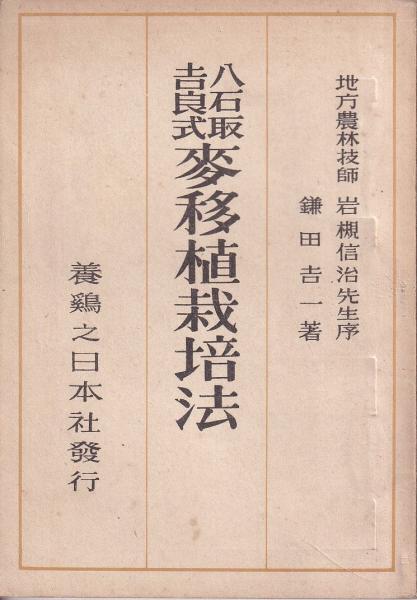 地方農林技師 岩槻信治先生序
鎌田吉一著
八石取
吉良式
麥移植栽培法
養鷄之日本社發行